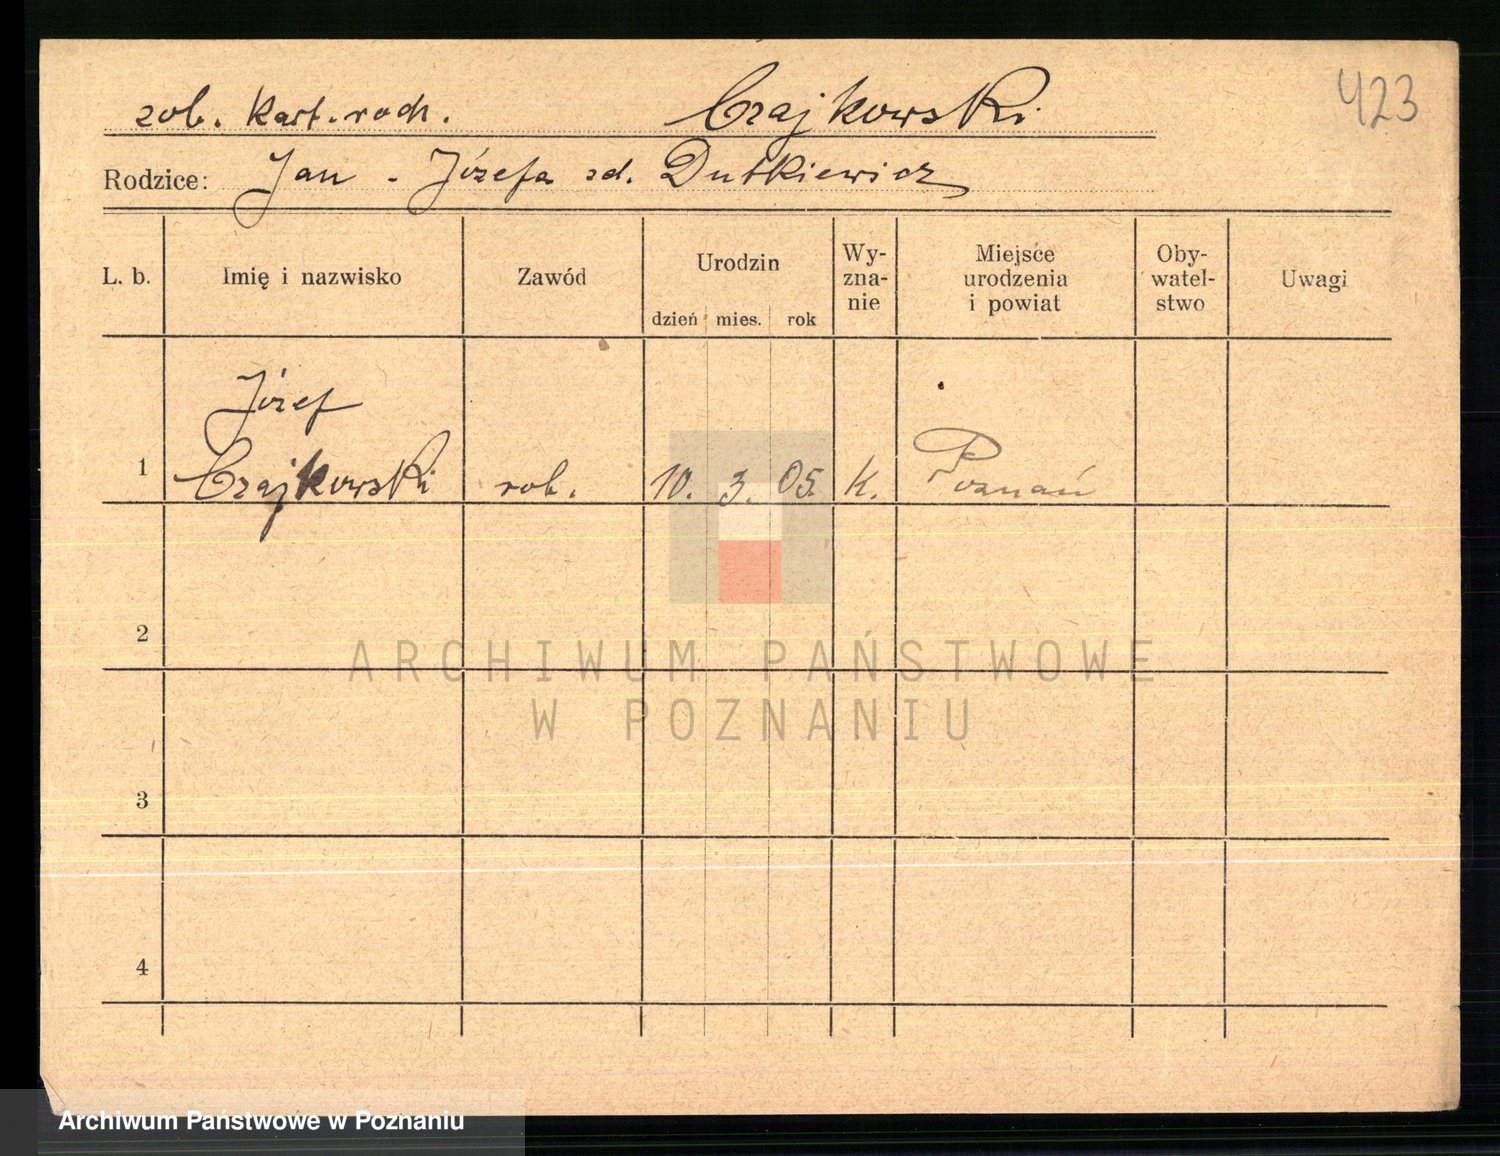 423
zob. Kart. rodz. Czajkowski
Rodzice: Jan - Józefa zd. Dutkiewicz
L. b. Imię i nazwisko Zawód Urodzin dzień mies. rok Wy-zna-nie Miejsce urodzenia i powiat Oby-watel-stwo Uwagi
Józef
1 Czajkowski rob. 10. 3. 05. K. Poznań
2
ARCHIWUM PAŃSTWOWE
W POZNANIU
3
4
Archiwum Państwowe w Poznaniu